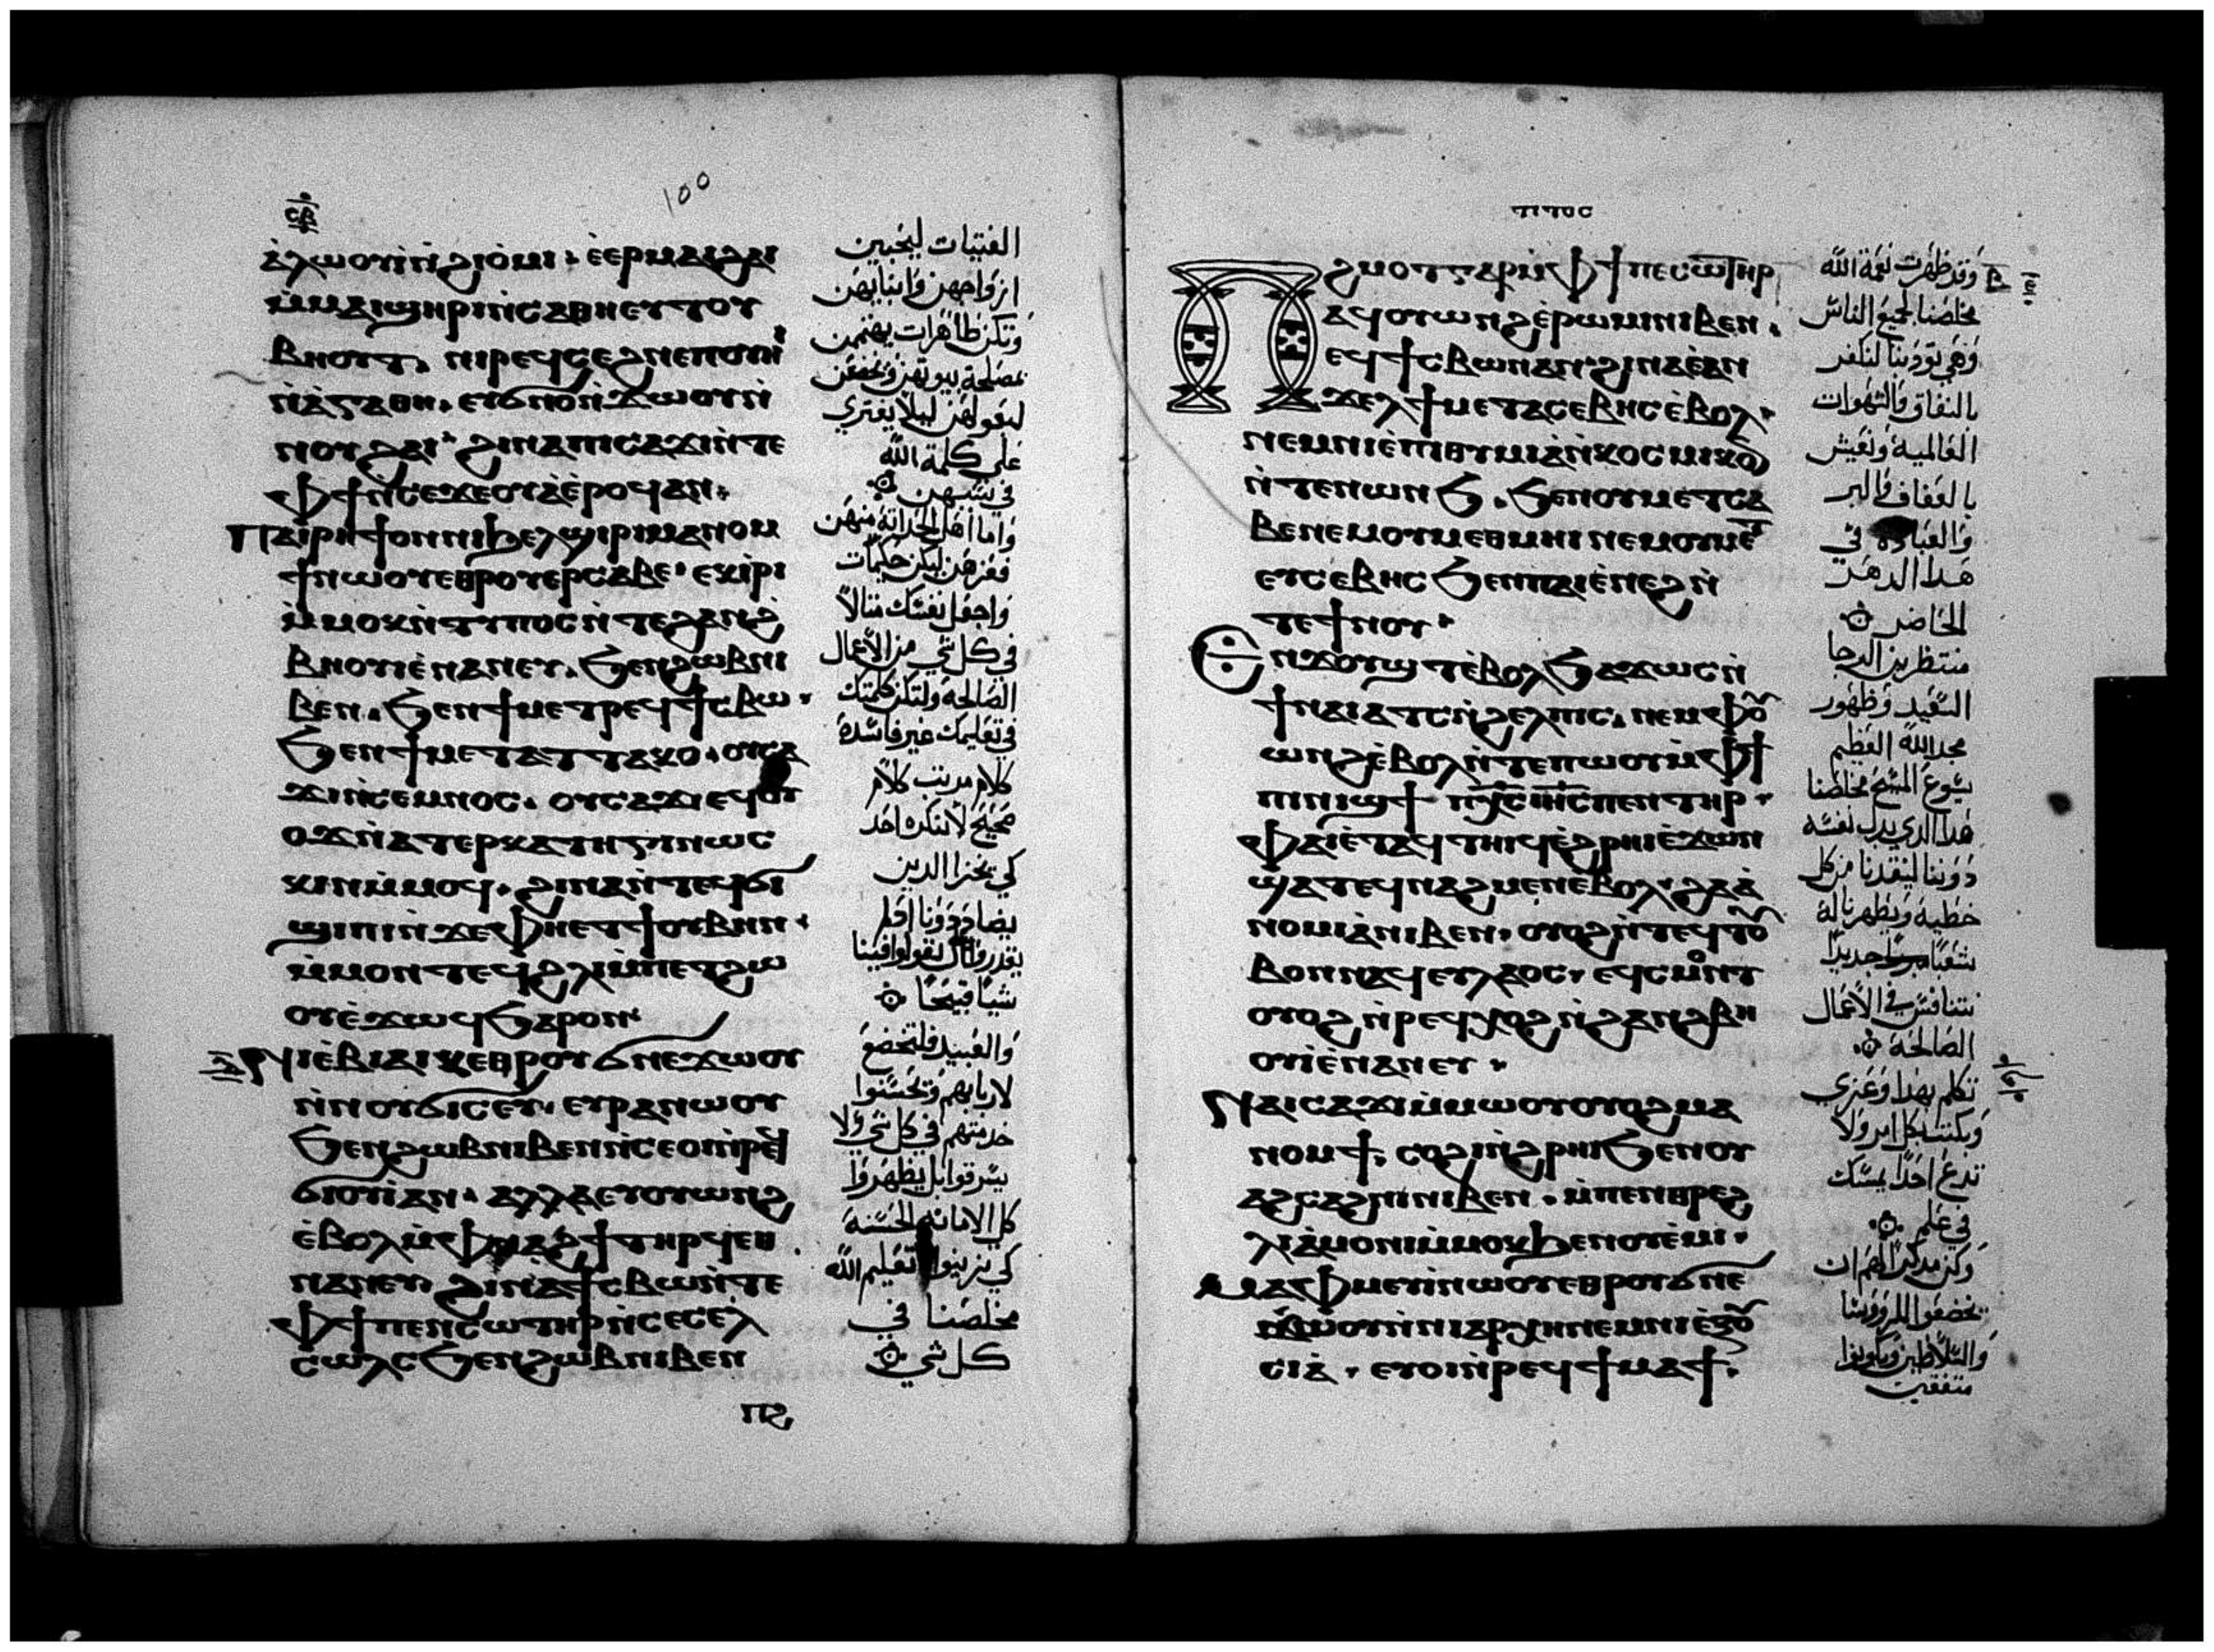 ⲥⲃ
100
ⲁ̀ⲗⲱⲟⲩⲓ̀ⲛ̀ϩⲓⲟ̀ⲙⲓ · ⲉ̀ⲉⲣⲙⲁⲓϩⲁⲓ
ⲙ̀ⲙⲁⲓϣⲏⲣⲓⲛ̀ⲥⲁⲑⲏⲉⲩⲧⲟⲩ
ⲃⲏⲟⲩⲧ · ⲛⲓⲣⲉϥⲥⲉϩⲛⲉⲡⲟⲩⲏⲓ
ⲛ̀ⲁ̀ⲅⲁⲑⲏ · ⲉⲩϭⲛⲟⲛ̀ϫⲱⲟⲩⲛ̀
ⲛⲟⲩϩⲁⲓ · ϩⲓⲛⲁⲡⲓⲥⲁϫⲓⲛ̀ⲧⲉ
ⲫϯⲛ̀ⲥⲉϫⲉⲟⲩⲁ̀ⲉ̀ⲣⲟϥⲁⲛ ·
ⲡⲁⲓⲣⲏϯⲟⲛⲛⲓϧⲉⲗϣⲓⲣⲓⲙⲁⲛⲟⲙ
ϯⲛⲱⲟⲩⲉⲑⲣⲟⲩⲉⲣⲥⲁⲃⲉ · ⲉⲕⲓ̀ⲣⲓ
ⲙ̀ⲙⲟⲕⲛ̀ⲧⲩⲡⲟⲥⲛ̀ⲧⲉϩⲁⲛϩ
ⲃⲏⲟⲩⲓⲉ̀ⲛⲁⲛⲉⲩ · ϧⲉⲛϩⲱⲃⲛⲓ
ⲃⲉⲛ · ϧⲉⲛϯⲙⲉⲧⲣⲉϥϯⲥⲃⲱ ·
ϧⲉⲛϯⲙⲉⲧⲁⲧⲧⲁⲕⲟ · ⲟⲩⲥⲁ
ϫⲓⲛ̀ⲥⲉⲙⲛⲟⲥ · ⲟⲩⲥⲁϫⲓⲉϥⲟⲩ
ⲟϫⲛ̀ⲁⲧⲉⲣⲕⲁⲧⲏⲅⲓⲛⲱⲥ
ⲕⲓⲛⲙ̀ⲙⲟϥ · ϩⲓⲛⲁⲛ̀ⲧⲉϥϭⲓ
ϣⲓⲡⲓⲛ̀ϫⲉⲫⲏⲉⲧϯⲟⲩⲃⲏⲛ ·
ⲙ̀ⲙⲟⲛⲧⲉϥϩⲗⲓⲙ̀ⲡⲉⲧϩⲱ
ⲟⲩⲉ̀ϫⲱϥϧⲁⲣⲟⲛ
ⲛⲓⲉ̀ⲃⲓⲁⲓⲕⲉⲑⲣⲟⲩϭⲛⲉϫⲱⲟⲩ
ⲛ̀ⲛⲟⲩϭⲓⲥⲉⲩ · ⲉⲩⲣⲁⲛⲱⲟⲩ
ϧⲉⲛϩⲱⲃⲛⲓⲃⲉⲛⲛ̀ⲥⲉⲟⲓⲛ̀ⲣⲉϥ
ϭⲓⲟⲩⲓ̀ⲁⲛ · ⲁⲗⲗⲁⲉⲩⲟⲩⲱⲛϩ
ⲉ̀ⲃⲟⲗⲙ̀ⲫⲛⲁϩϯⲧⲏⲣϥⲉⲑ
ⲛⲁⲛⲉⲩ ϩⲓⲛⲁϯⲥⲃⲱⲛ̀ⲧⲉ
ⲫϯⲡⲉⲛⲥⲱⲧⲏⲣⲛ̀ⲥⲉⲥⲉⲗ
ⲥⲱⲗⲥϧⲉⲛϩⲱⲃⲛⲓⲃⲉⲛ
ⲡϩ
الفتيات ليحببن
ازواجهن وابنايهن
وتكن طاهرات يهتممن
بمصلحة بيوتهن ويخضعن
لبعولهن ليلا يفترى
على كلمة الله
في سببهن
واما اهل الحداثة منهن
فعزهن ليكن حكيمات
واجعل نفسك مثالا
في كل شي من الاعمال
الصالحة ولتكن كلمتك
في تعليمك غير فاسدة
كلام مرتب كلام
صحيح لا ينكره احد
كي يخزا الدين
يضادونا اذ لم
يقدروا ان يقولوا فينا
شيا قبيحا
والعبيد فلتخضع
لاربابهم وتحسنوا
خدمتهم في كل شي ولا
يسرقوا بل يظهروا
كل الامانه الحسنة
كي يزينوا تعليم الله
مخلصنا في
كل شي
ⲧⲓⲧⲟⲥ
ⲡϩⲙⲟⲧⲅⲁⲣⲙ̀ⲫϯⲡⲉⲥⲱⲧⲏⲣ
ⲁϥⲟⲩⲱⲛϩⲉ̀ⲣⲱⲙⲓⲛⲓⲃⲉⲛ ·
ⲉϥϯⲥⲃⲱⲛⲁⲛ · ϩⲓⲛⲁⲉ̀ⲁⲛ
ϫⲉⲗϯⲙⲉⲧⲁⲥⲉⲃⲏⲥⲉ̀ⲃⲟⲗ ·
ⲛⲉⲙⲛⲓⲉ̀ⲡⲓⲑⲩⲙⲓⲁ̀ⲛ̀ⲕⲟⲥⲙⲓⲕⲟⲛ
ⲛ̀ⲧⲉⲛⲱⲛϧ · ϧⲉⲛⲟⲩⲙⲉⲧⲥⲁ
ⲃⲉⲛⲉⲙⲟⲩⲙⲉⲑⲙⲏⲓ ⲛⲉⲙⲟⲩⲙⲉⲧ
ⲉⲩⲥⲉⲃⲏⲥϧⲉⲛⲡⲁⲓⲉ̀ⲛⲉϩⲛ̀
ⲧⲉϯⲛⲟⲩ ·
ⲉⲛϫⲟⲩϣⲧⲉ̀ⲃⲟⲗϧⲁϫⲱⲥⲛ̀
ϯⲙⲁⲓⲁⲧⲥⲛ̀ϩⲉⲗⲡⲓⲥ · ⲛⲉⲙⲫⲟⲩ
ⲱⲛϩⲉ̀ⲃⲟⲗⲛ̀ⲧⲉⲡⲱⲟⲩⲙ̀ⲫϯ
ⲡⲓⲛⲓϣϯ ⲡⲭⲥⲓⲏⲥⲡⲉⲛⲥⲏⲣ ·
ⲫⲁⲓⲉ̀ⲧⲁϥⲧⲏⲓϥⲉ̀ϩⲣⲏⲓⲉ̀ϫⲱⲛ
ϣⲁⲧⲉϥⲛⲁϩⲙⲉⲛⲉ̀ⲃⲟⲗ · ϩⲁⲁ̀
ⲛⲟⲙⲓⲁ̀ⲛⲓⲃⲉⲛ · ⲟⲩⲟϩⲛ̀ⲧⲉϥⲧⲟⲩ
ⲃⲟⲛⲛⲁϥⲉⲩⲗⲁⲟⲥ · ⲉϥⲥⲙⲟⲛⲧ
ⲟⲩⲟϩⲛ̀ⲣⲉϥⲭⲟϩⲛ̀ϩⲁⲛϩⲃⲏ
ⲟⲩⲓⲉ̀ⲛⲁⲛⲉⲩ ·
ⲛⲁⲓⲥⲁϫⲓⲙ̀ⲙⲱⲟⲩⲟⲩⲟϩⲙⲁ
ⲛⲟⲙϯ · ⲥⲟϩⲓⲛ̀ϩⲣⲏⲓϧⲉⲛⲟⲩ
ⲁϩⲥⲁϩⲛⲓⲛⲓⲃⲉⲛ · ⲙ̀ⲡⲉⲛⲑⲣⲉϩ
ⲗⲓⲁ̀ⲙⲟⲛⲓⲙ̀ⲙⲟⲕϧⲉⲛⲟⲩⲉ̀ⲙⲓ ·
ⲙⲁⲫⲙⲉⲩⲓ̀ⲛⲱⲟⲩⲉⲑⲣⲟⲩϭⲛⲉ
ϫⲱⲟⲩⲛ̀ⲛⲓⲁⲣⲭⲏⲛⲉⲙⲛⲓⲉ̀ⲝⲟⲩ
ⲥⲓⲁ̀ · ⲉⲩⲟⲓⲛ̀ⲣⲉϥϯⲙⲁϯ ·
وقد ظهرت نعمة الله
مخلصنا لجميع الناس
وهي تودبنا لنكفر
بالنفاق والشهوات
العالمية ونعيش
بالعفاف والبر
والعبادة في
هدا الدهر
الحاضر
منتظرين الرجا
السعيد وظهور
مجد الله العظيم
يسوع المسيح مخلصنا
هدا الدي بدل نفسه
دوننا لينقدنا من كل
خطية ويطهرنا له
شعبا جديدا
نتنافس في الاعمال
الصالحة
تكلم بهدا وعزي
وبكت بكل امر ولا
تدع احدا يمسك
في علم
وكن مدكرا لهم ان
يخضعوا للروسا
والسلاطين ويكونوا
متفقين